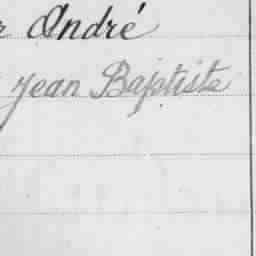 André
Jean Baptiste